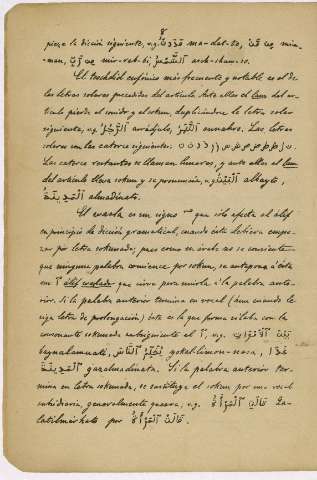 8
pieza la dicción siguiente, v.g. مَدَدْتُّ ma-dat-to, مِن مَّن min-
man, مِن رَّبِّ mir-rab-bi, اَلشَّمْسُ asch-scham-so.
El teschdid eufónico más frecuente y notable es el de
las letras solares precedidas del artículo. Ante ellas el lam del ar-
tículo pierde el sonido y el sokun, duplicándose la letra solar
siguiente, v.g. اَلرَّجُلُ arráchulo, اَلنَّهْرُ ennahro. Las letras
solares son las catorce siguientes: ت ث د ذ ر ز س ش ص ض ط ظ ل ن
Las catorce restantes se llaman lunares, y ante ellas el lam
del artículo lleva sokun y se pronuncia, اَلْبَيْتُ albayto,
اَلْمَدِينَةُ almadinato.
El wasla es un signo que sólo afecta al álef
en principio de dicción gramatical, cuando ésta debiera empe-
zar por letra sokunada; pues como en árabe no se consiente
que ninguna palabra comience por sokun, se antepone á ésta
un ٱ álef waslado que sirve para unirla á la palabra ante-
rior. Si la palabra anterior termina en vocal (aun cuando le
siga letra de prolongación) ésta es la que forma sílaba con la
consonante sokunada subsiguiente al ٱ,
Si la palabra anterior ter-
mina en letra sokunada, se sustituye el sokun por una vocal
subsidiaria, generalmente quesra, v.g. قَالَتِ ٱلْمَرْأَةُ ka-
latilmárhato por قَالَتْ اَلْمَرْأَةُ.